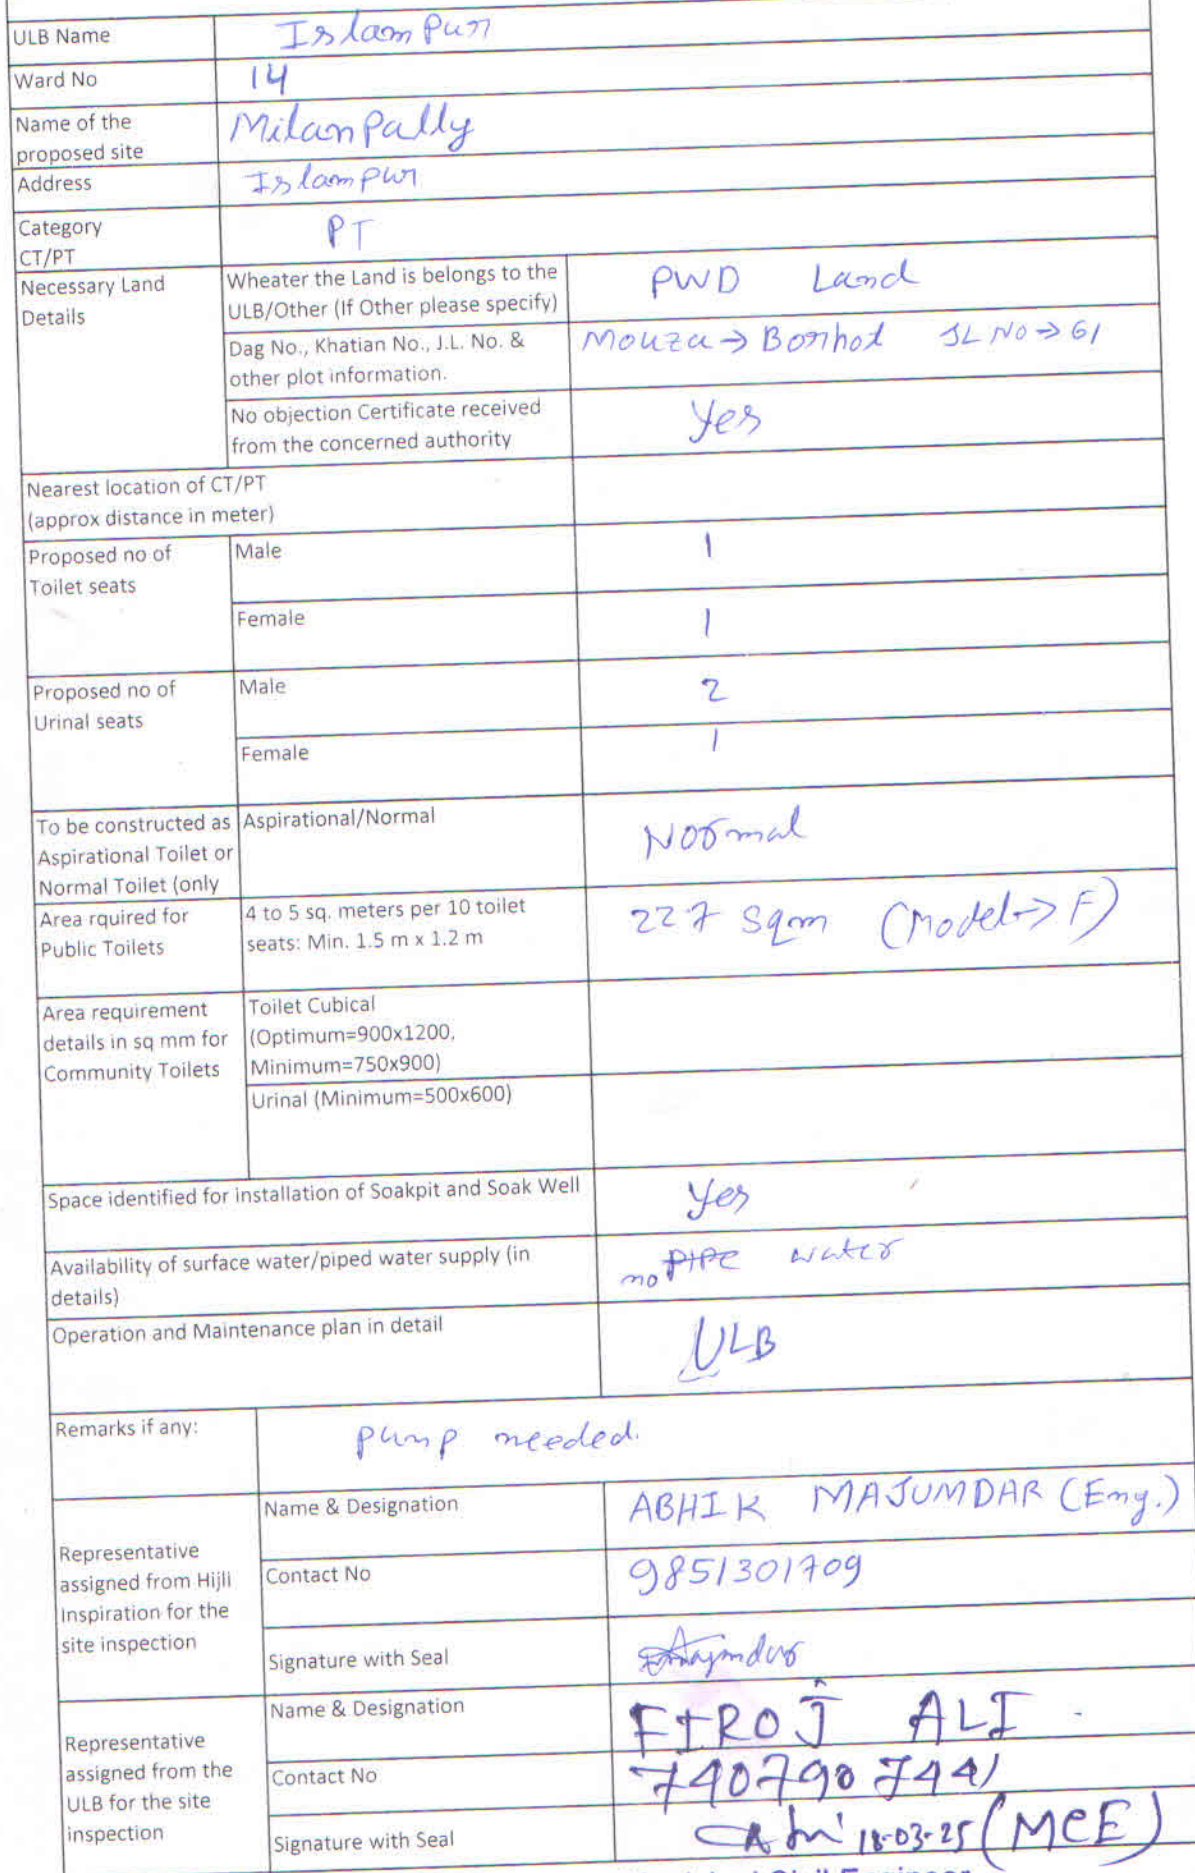 ULB Name Islampur
Ward No 14
Name of the proposed site Milanpally
Address Islampur
Category CT/PT PT
Necessary Land Details
Wheater the Land is belongs to the ULB/Other (If Other please specify) PWD Land
Dag No., Khatian No., J.L. No. & other plot information. Mouza → Borhot JL NO → 61
No objection Certificate received from the concerned authority Yes
Nearest location of CT/PT
(approx distance in meter)
Proposed no of Toilet seats
Male 1
Female 1
Proposed no of Urinal seats
Male 2
Female 1
To be constructed as Aspirational Toilet or Normal Toilet (only
Aspirational/Normal Normal
Area rquired for Public Toilets
4 to 5 sq. meters per 10 toilet seats: Min. 1.5 m x 1.2 m 227 Sqm (Model→F)
Area requirement details in sq mm for Community Toilets
Toilet Cubical
(Optimum=900x1200,
Minimum=750x900)
Urinal (Minimum=500x600)
Space identified for installation of Soakpit and Soak Well Yes
Availability of surface water/piped water supply (in details) no PIPE water
Operation and Maintenance plan in detail ULB
Remarks if any: pump needed.
Representative assigned from Hijli Inspiration for the site inspection
Name & Designation ABHIK MAJUMDAR (Eng.)
Contact No 9851301709
Signature with Seal
Representative assigned from the ULB for the site inspection
Name & Designation FIROJ ALI
Contact No 7407907441
Signature with Seal 18-03-25 (MCE)